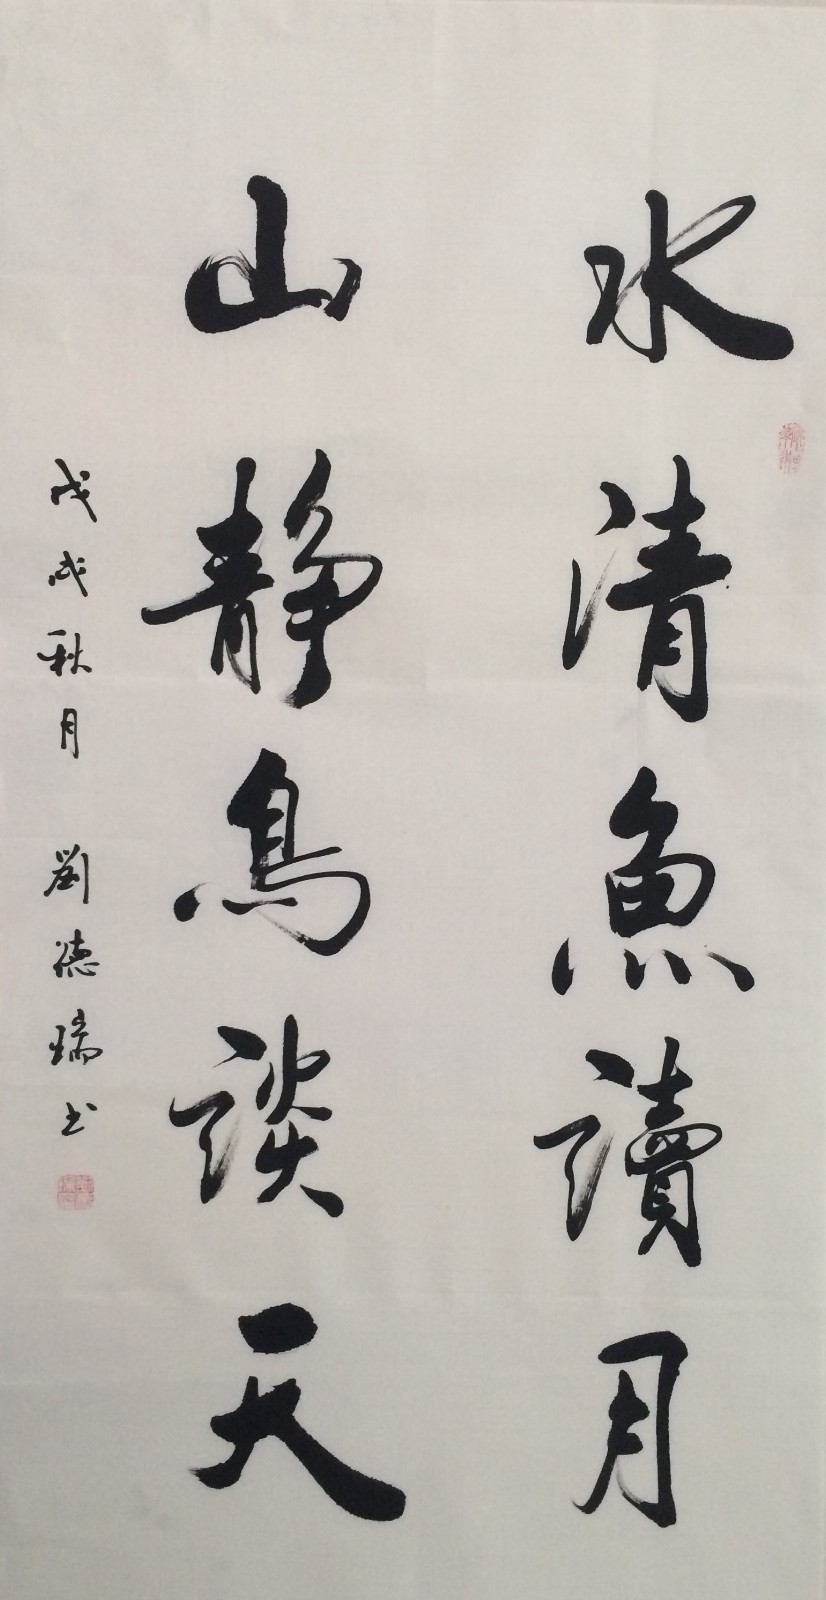 水清魚讀月
山靜鳥談天
戊戌秋月 劉德瑞书